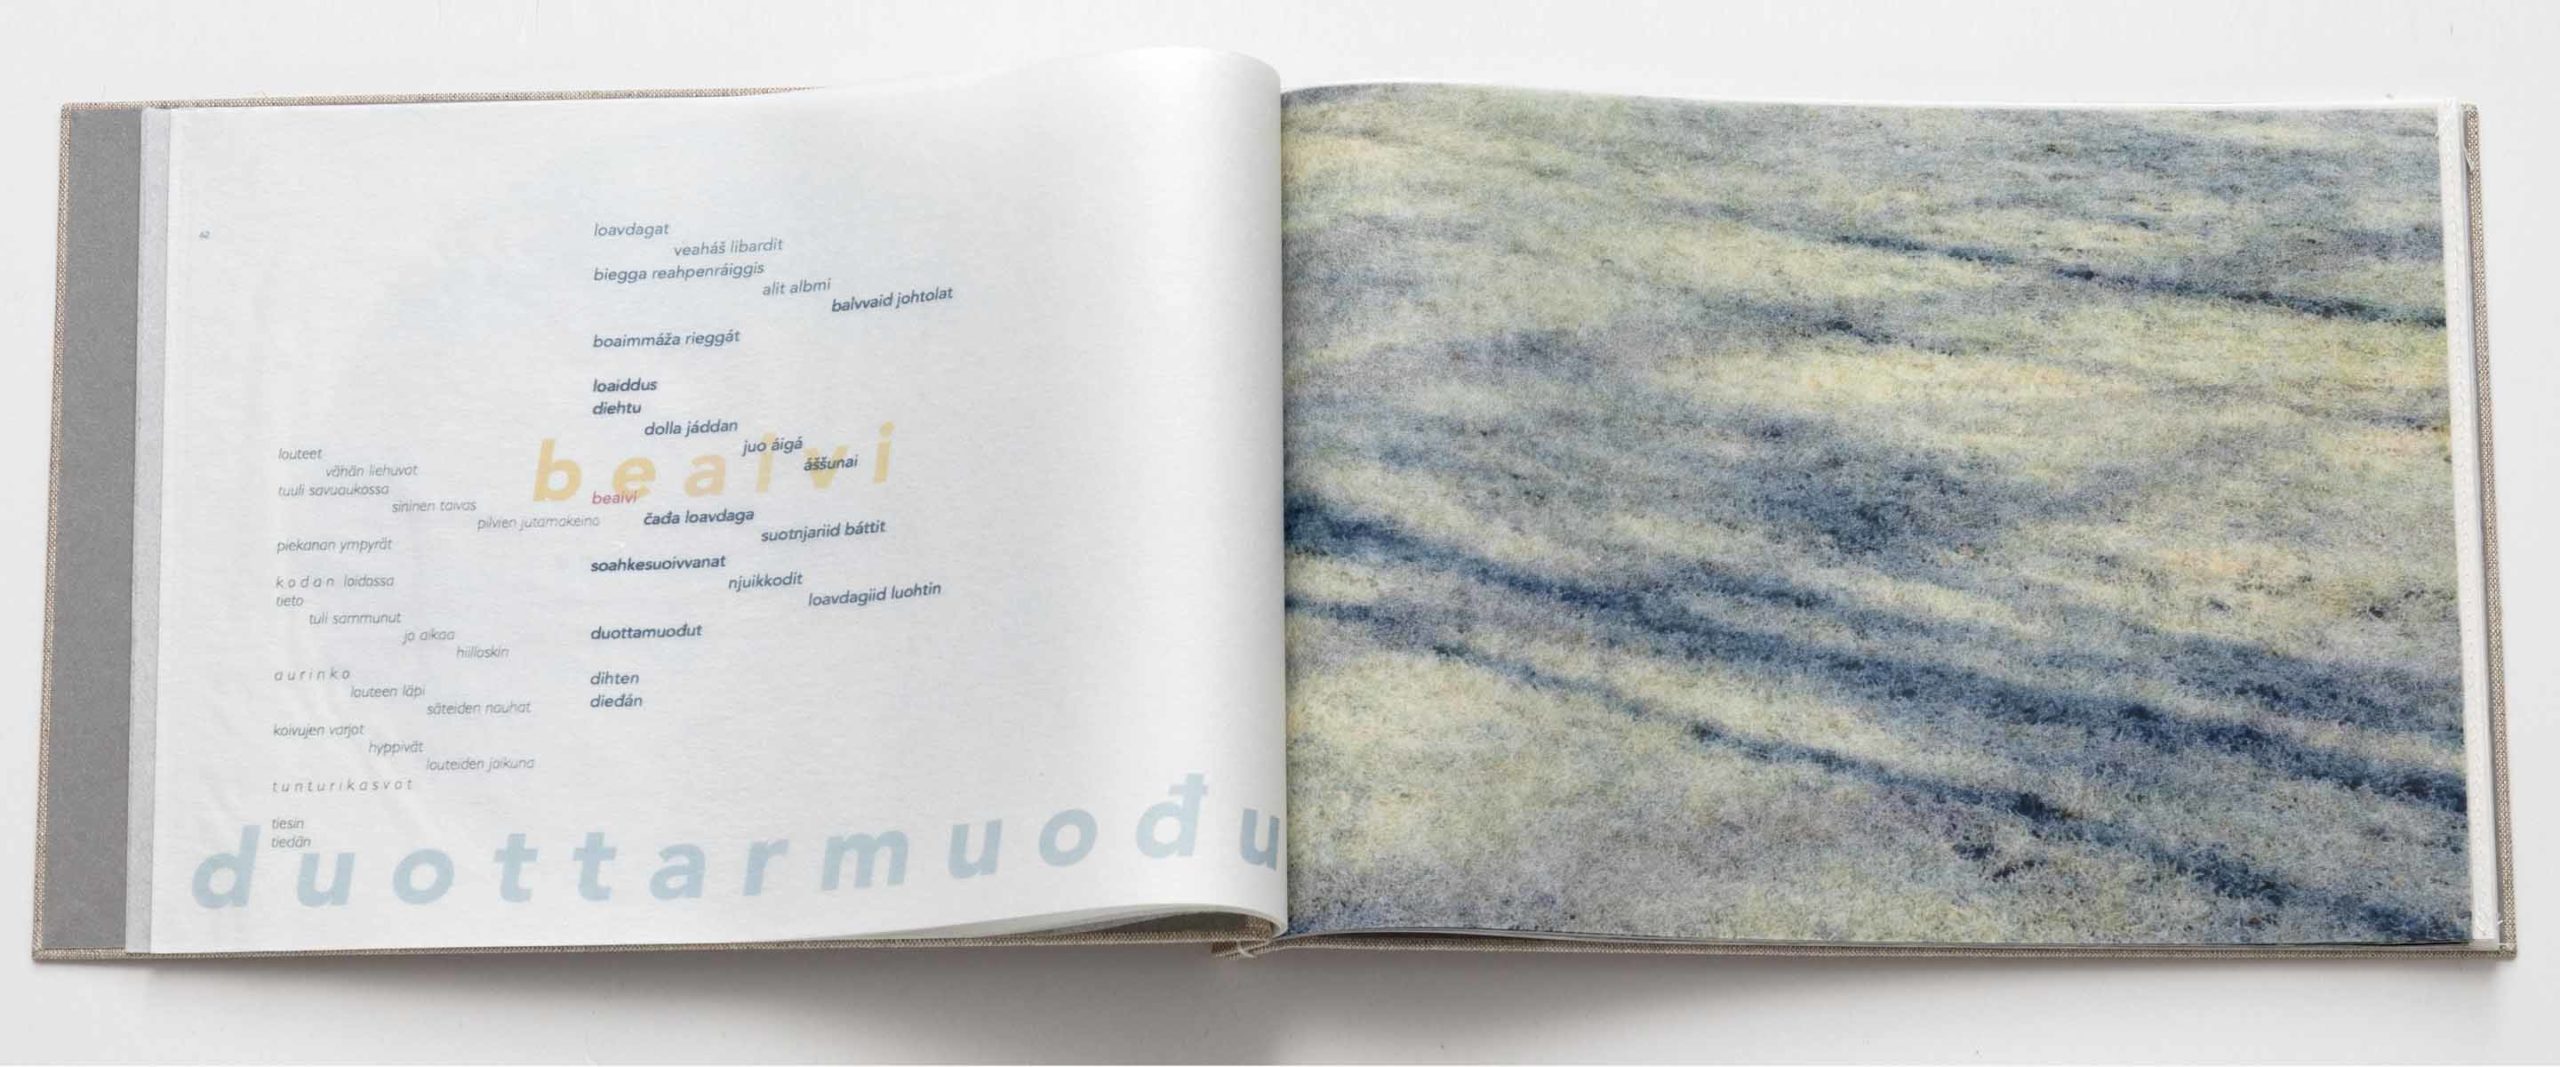 62
loavdagat
veaháš libardit
biegga reahpenráiggis
alit albmi
balvvaid johtolat
boaimmáža rieggát
loaiddus
diehtu
dolla jáddan
juo áigá
áššunai
bealvi
bealvi
čađa loavdaga
suotnjariid báttit
soahkesuoivvanat
njuikkodit
loavdagiid luohtin
duottamuođut
dihten
dieđán
louteet
vähän liehuvat
tuuli savuaukossa
sininen taivas
pilvien jutamakeino
piekanan ympyrät
kodan loidossa
tieto
tuli sammunut
jo aikaa
hiilloskin
aurinko
louteen läpi
säteiden nauhat
koivujen varjot
hyppivät
louteiden joikuna
tunturikasvot
tiesin
tiedän
duottarmuođu